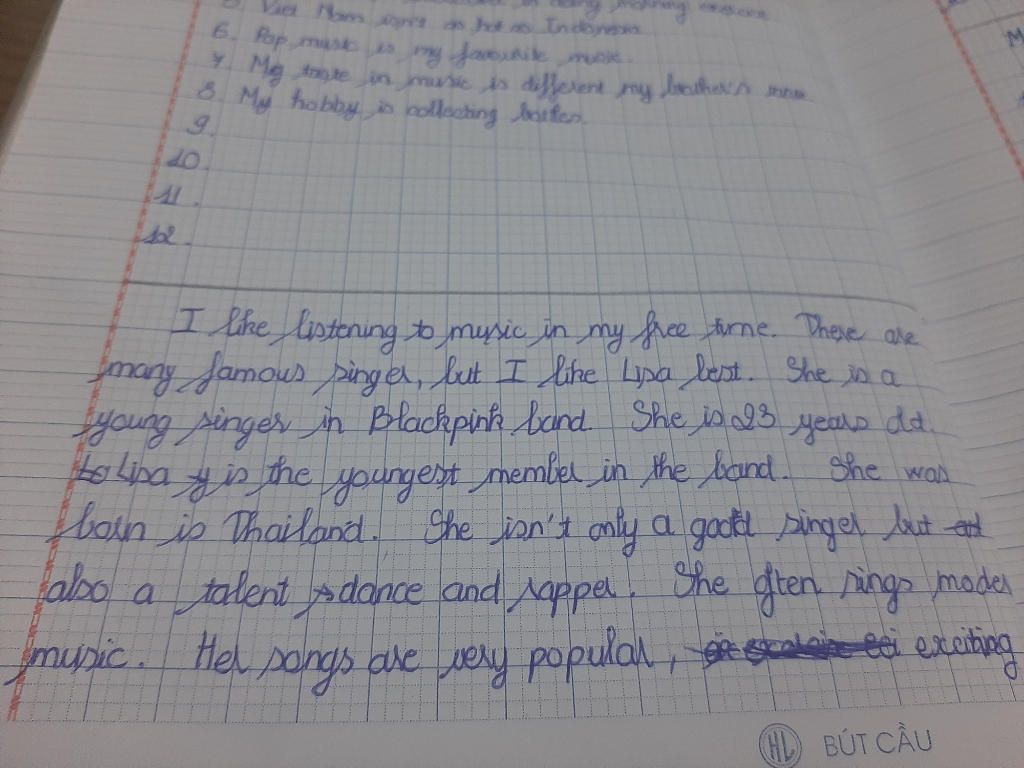 5. Viet Nam isn't as hot as Indonesia
6. Pop music is my favourite music.
7. My taste in music is different my brother's
8. My hobby is collecting
9.
10.
11.
12.
I like listening to music in my free time. There are
many famous singer, but I like Lisa best. She is a
young singer in Blackpink band. She is 23 years old.
Lisa is the youngest member in the band. She was
born is Thailand. She isn't only a good singer but
also a talent dance and rapper. She often sings moder
music. Her songs are very popular, exciting
HL BÚT CẦU
M